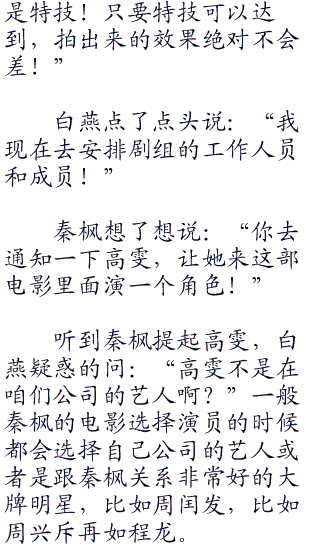 是特技！只要特技可以达
到，拍出来的效果绝对不会
差！”
白燕点了点头说：“我
现在去安排剧组的工作人员
和成员！”
秦枫想了想说：“你去
通知一下高雯，让她来这部
电影里面演一个角色！”
听到秦枫提起高雯，白
燕疑惑的问：“高雯不是在
咱们公司的艺人啊？”一般
秦枫的电影选择演员的时候
都会选择自己公司的艺人或
者是跟秦枫关系非常好的大
牌明星，比如周闰发，比如
周兴斥再如程龙。